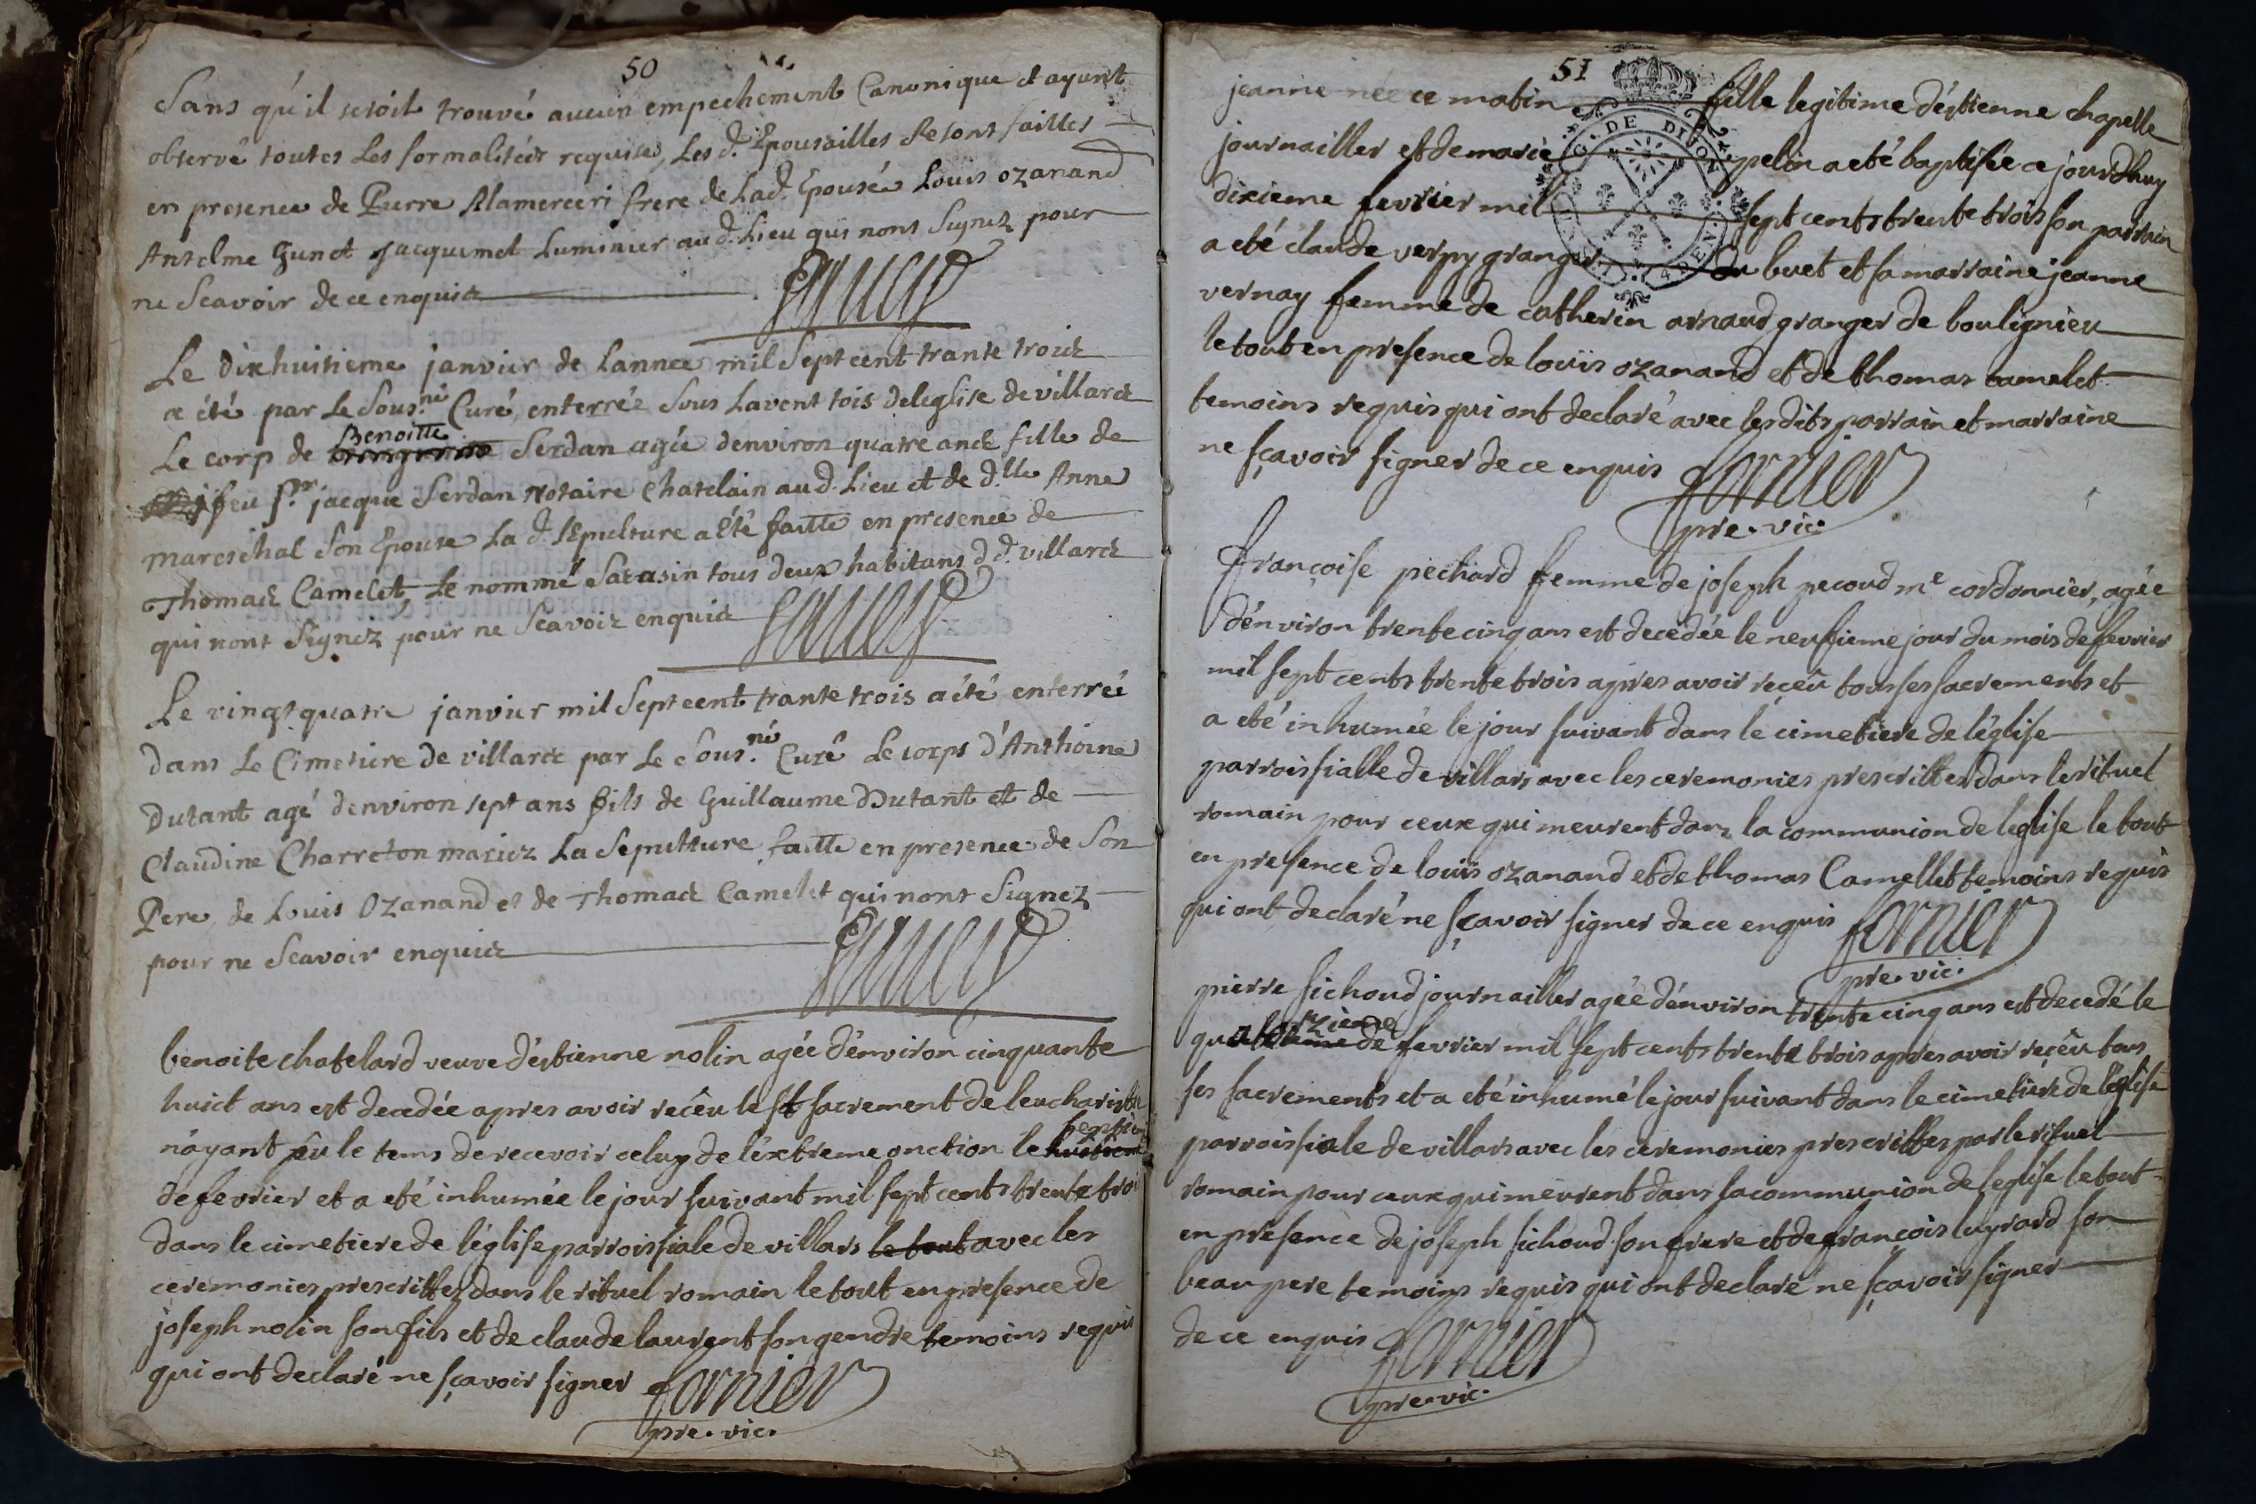 50
Sans qu'il se soit trouvé aucun empechement Canonique et ayant
observé toutes Les formalitéz requises, Les d. Epousailles se sont faittes
en presence de Pierre Alamerceri frere de Lad. Epousée Louis ozanand
Antelme Gunet Jacquemet Luminier aud. Lieu qui nont Signez pour
ne Scavoir de ce enquis
Le Dixhuitieme janvier de Lannee mil Sept cent trante trois
a été par Le Sous.né Curé, enterrée Sous Lavent tois de leglise de villars
Le corp de Benoitte Serdan agée denviron quatre ans fille de
feu Sr. jacque Serdan Notaire Chatelain aud. Lieu et de d.lle Anne
mareschal Son Epouse La d. sepulture a été faitte en presence de
Thomas Camelet, Le nommé Sarasin tous deux habitans dd. villars
qui nont Signez pour ne Scavoir enquis
Le vingt quatre janvier mil Sept cent trante trois a été enterré
dans Le Cimetiere de villars par Le Sous.né Curé Le corps d'Anthoine
Dutant agé denviron sept ans fils de Guillaume Dutant et de
Claudine Charreton mariez La Sepulture faitte en presence de Son
Pere, de Louis Ozanand et de Thomas Camelet qui nont Signez
pour ne Scavoir enquis
benoite chatelard veuve d'éstienne nolin agée d'énviron cinquante
huict ans est decedée apres avoir recêu le st sacrement de leucharistie
n'ayant pêu le tems de recevoir celuy de l'éxtreme onction le septiem huitieme
de fevrier et a eté inhumée le jour suivant mil sept cents trente trois
dans le cimetiere de l'église parroissiale de villars le tout avec les
ceremonies prescrittes dans le rituel romain le tout en presence de
joseph nolin son fils et de claude laurent son gendre temoins requis
qui ont declaré ne sçavoir signer fornier
pre. vic.
51
jeanne née ce matin fille legitime d'éstienne chapelle
journailler et de marie pelin a eté baptisée ce jourdhuy
dixieme fevrier mil sept cents trente trois son parrain
a eté claude verpy granger du buet et sa marraine jeanne
vernay femme de catherin arnaud granger de boulignieu
le tout en presence de loüis ozanand et de thomas camelet
temoins requis qui ont declaré avec lesdits parrain et marraine
ne sçavoir signer de ce enquis fornier
pre. vic.
françoise pechard femme de joseph pecoud me cordonnier, agée
d'énviron trente cinq ans est decedée le neufieme jour du mois de fevrier
mil sept cents trente trois apres avoir recêu tous ses sacrements et
a eté inhumée le jour suivant dans le cimetiere de l'église
parroissialle de villars avec les ceremonies prescrittes dans le rituel
romain pour ceux qui meurent dans la communion de leglise le tout
en presence de loüis ozanand et de thomas Camellet temoins requis
qui ont declaré ne sçavoir signer de ce enquis fornier
pre. vic.
pierre sichoud journailler agée d'énviron trente cinq ans est decedé le
quatorzieme de fevrier mil sept cents trente trois apres avoir recêu tous
ses sacrements et a eté inhumé le jour suivant dans le cimetiere de l'église
parroissiale de villars avec les ceremonies prescrittes par le rituel
romain pour ceux qui meurent dans la communion de leglise le tout
en presence de joseph sichoud son frere et de françois luyrard son
beau pere temoins requis qui ont declare ne sçavoir signer
de ce enquis fornier
pre. vic.